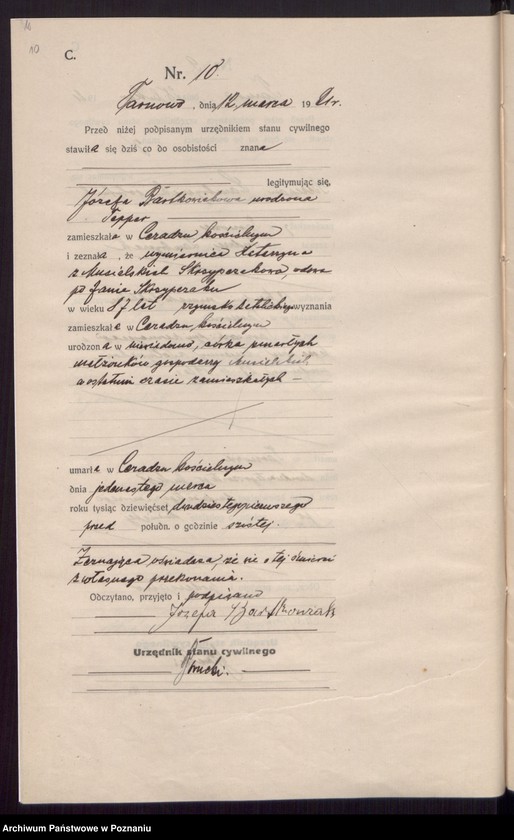 10
C.
Nr. 10.
Tarnowo, dnia 12 marca 1921r.
Przed niżej podpisanym urzędnikiem stanu cywilnego
stawiła się dziś co do osobistości znana
legitymując się,
Józefa Bartkowiakowa urodzona
Tepper
zamieszkała w Ceradzu kościelnym
i zeznała, że wymiernica Katarzyna
z Musielskich Skrzypczakowa, wdowa
po Janie Skrzypczaku
w wieku 87 lat rzymsko katolickiego wyznania
zamieszkała w Ceradzu kościelnym
urodzona w niewiadomo, córka zmarłych
małżonków gospodarzy
w ostatnim czasie zamieszkałych –
umarła w Ceradzu kościelnym
dnia jedenastego marca
roku tysiąc dziewięćset dwudziestegopierwszego
przed połudn. o godzinie szóstej.
Zeznająca oświadcza, że wie o tej śmierci
z własnego przekonania.
Odczytano, przyjęto i podpisano
Józefa Bartkowiak
Urzędnik stanu cywilnego
Archiwum Państwowe w Poznaniu